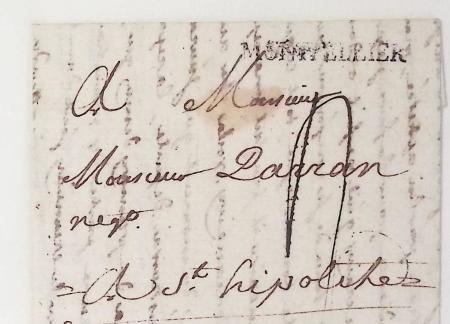 MONTPELLIER
A Monsieur
Monsieur Parran
nego.
= A St. hipolithe =